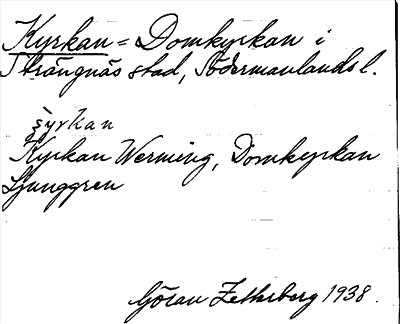 Kyrkan = Domkyrkan i
Strängnäs stad, Södermanlands l.
Kyrkan Werming, Domkyrkan
Ljunggren
Göran Zetterberg 1938.